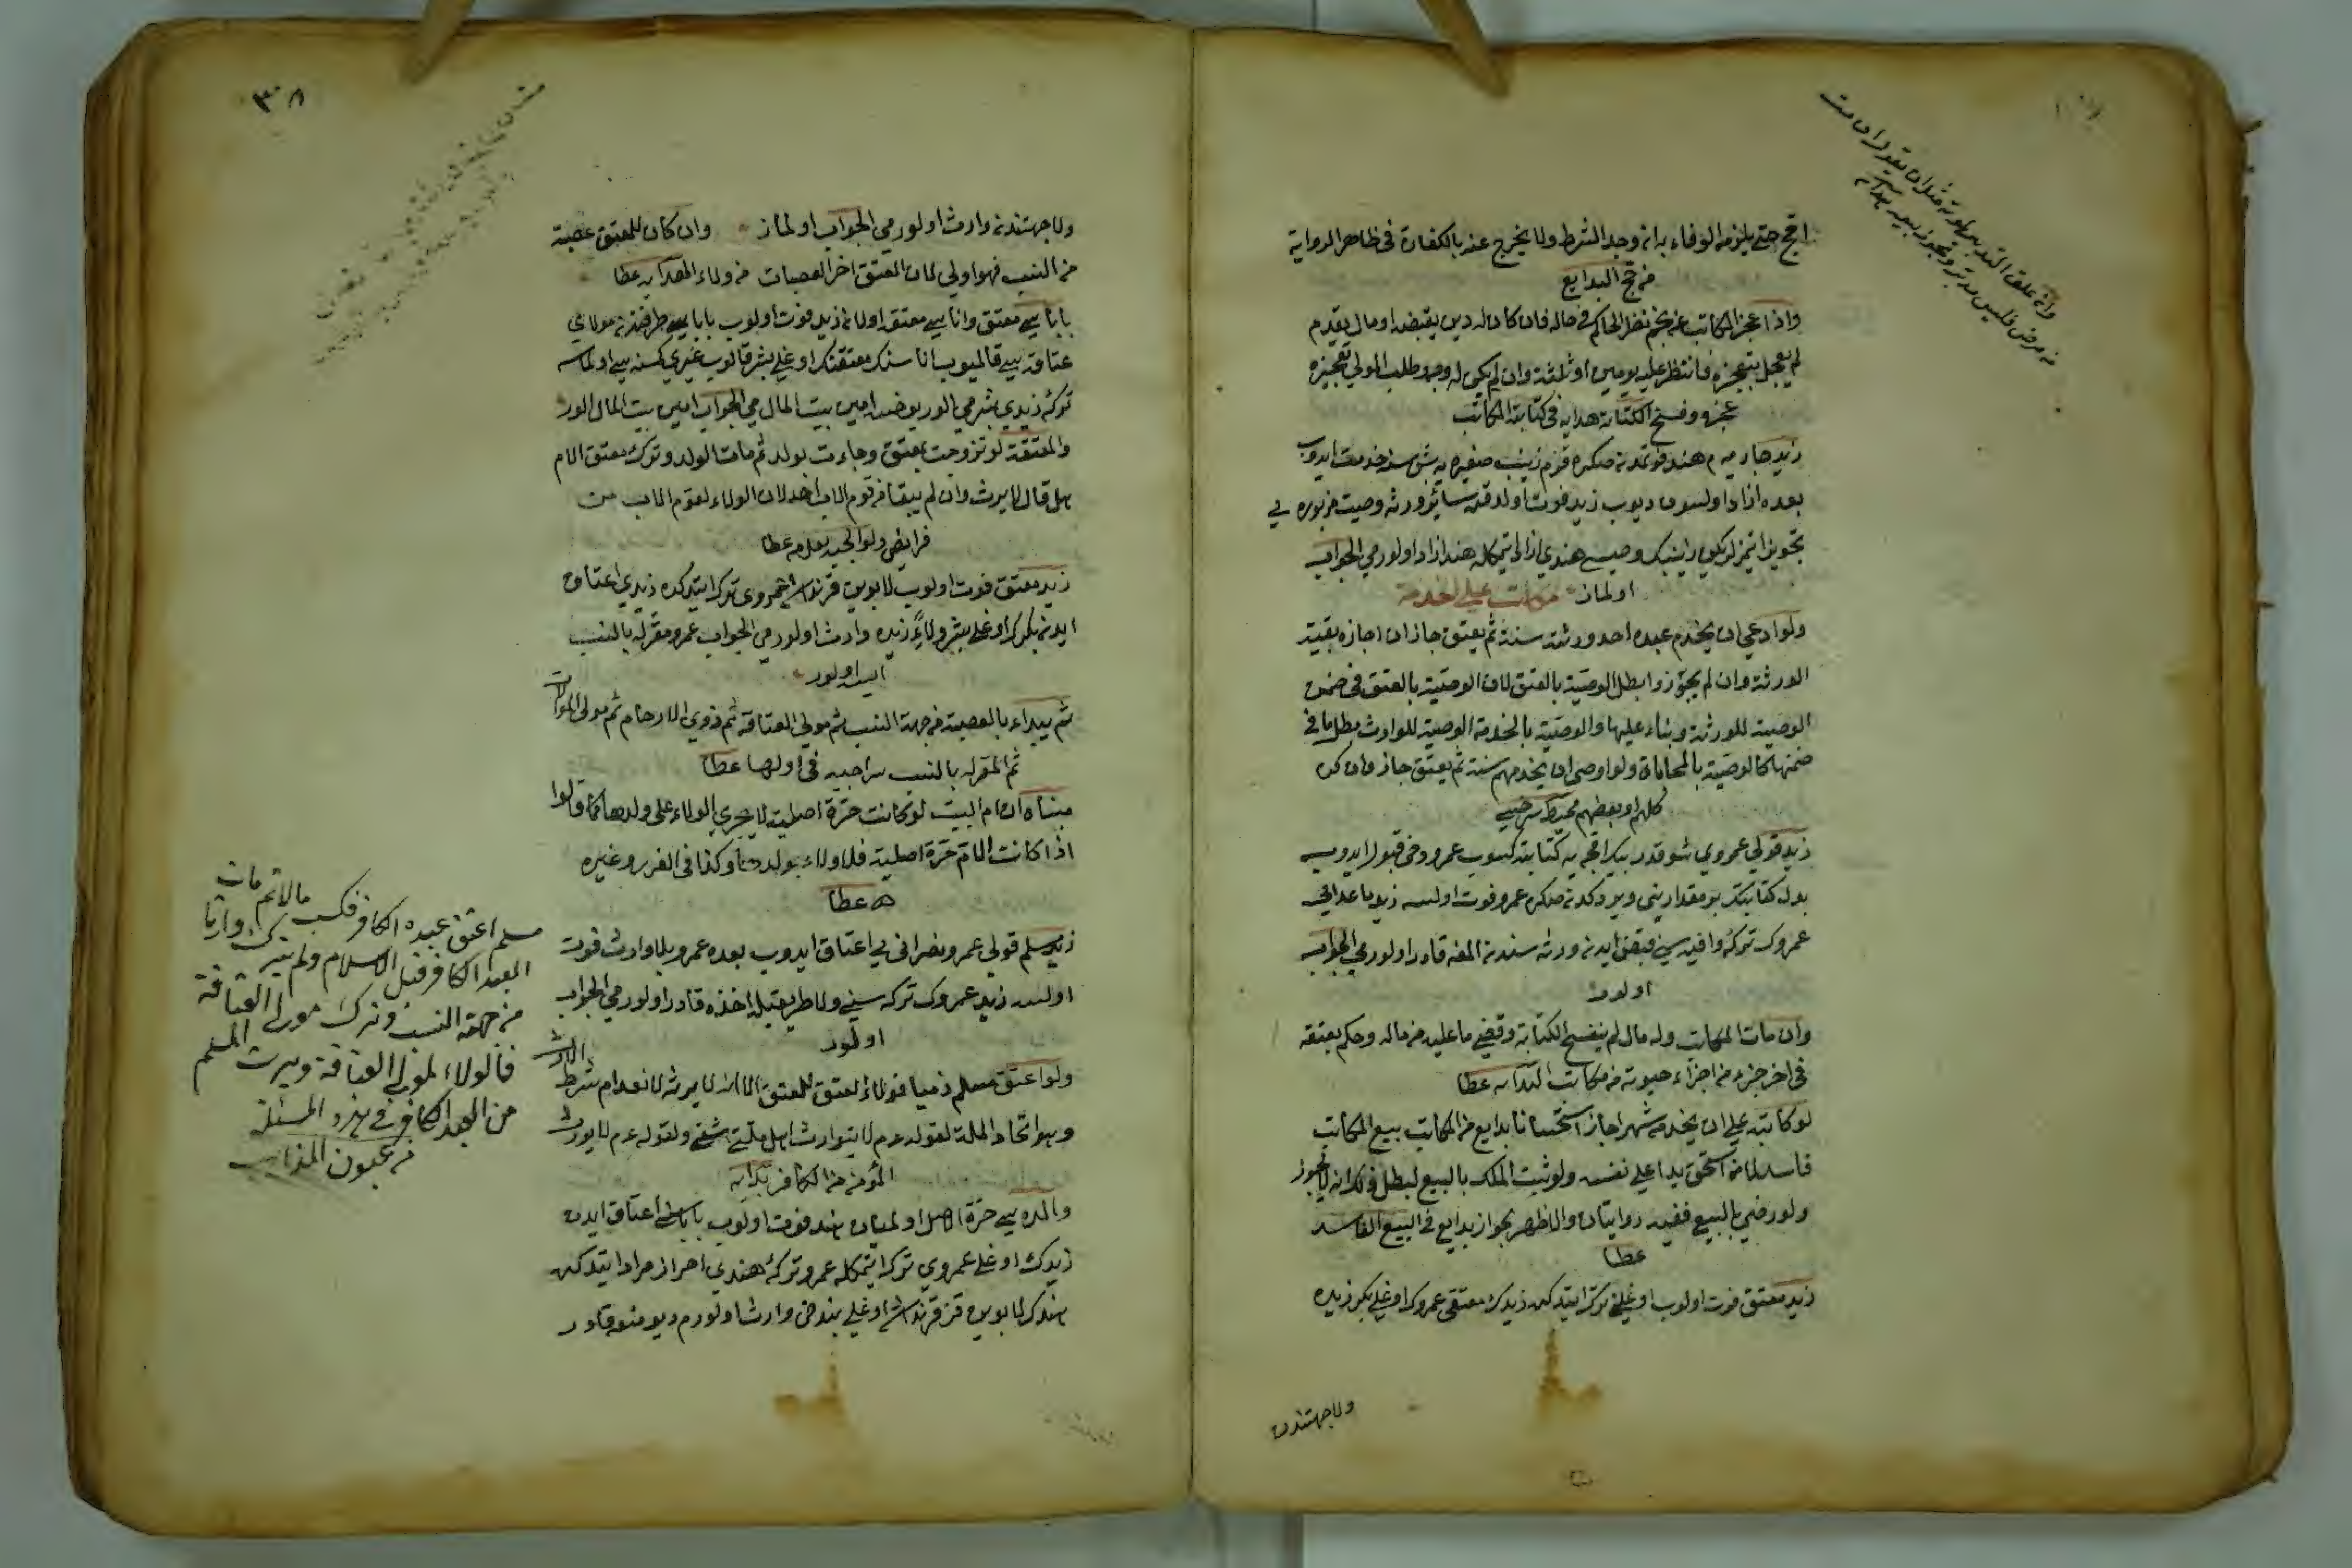 احج حتى يلزمه الوفاء به اذا وجد الشرط ولا يخرج عنه بالكفارة فى ظاهر الرواية
من حج البدايع
واذا عجز المكاتب عن نجم نظر الحاكم فى حاله فان كان له دين يقبضه او مال يقدم
لم يعجل بتعجيزه وانتظر عليه يومين او ثلثة وان لم يكن له وجه وطلب المولى تعجيزه
عجزه وفسخ الكتابة هدايه فى كتابة المكاتب
زيد جاريه م هند فوتمدنصكره قزم زينب صغيره يه بش سنه خدمت ايدوب
بعده ازاد اولسون ديوب زيد فوت اولدقده سائر ورثه وصيت مزبوره يى
تجويز اتمزلر لكن زينبك وصيسى هندى ازاد اتمكله هند ازاد اولورمى الجواب
اولماز
ولو ادعى ان يخدم عبده احد ورثته سنة ثم يعتق جاز ان اجازه بقية
الورثة وان لم يجوزوا بطل الوصية بالعتق لان الوصية بالعتق فى ضمن
الوصية للورثة وبناء عليها والوصية بالخدمة الوصية للوارث بطل ما فى
ضمنها كالوصية بالمحاباة ولو اوصى ان يخدمهم سنة ثم يعتق جاز وان كره
كلهم او بعضهم محيط سرخسى
زيد قولى عمروى شو قدر بيك اقچه يه كتابته كسوب عمرو دخى قبول ايدوب
بدل كتابتك بر مقدارينى ويردكدنصكره عمرو فوت اولسه زيد ما عدايى
عمروك تركه وافيه سنى قبض ايدن ورثه سندن المغه قادر اولورمى الجواب
اولور
وان مات المكاتب وله مال لم ينفسخ الكتابة وقضى ما عليه من ماله وحكم بعتقه
فى اخر جزء من اجزاء حيوته من مكاتب الهدايه عطا
لو كاتبه على ان يخدمه شهرا جاز استحسانا بدايع من المكاتب بيع المكاتب
فاسد لانه استحق يدا على نفسه ولو ثبت الملك بالبيع لبطل ذلك انه لا يجوز
ولو رضى بالبيع ففيه روايتان والاظهر الجواز بدايع فى البيع الفاسد
عطا
زيد معتق فوت اولوب اوغلى ترك ايتدكده زيدك معتقى عمروك اوغلى بكر زيده
ولاجهتندن
٣٠٨
ولاجهتندن وارث اولورمى الجواب اولماز وان كان للمعتق عصبة
من النسب فهو اولى لان المعتق اخر العصبات من ولاء الهدايه عطا
باباسى معتق واناسى معتقه اولان زيد فوت اولوب باباسى طرفندن مولاى
عتاقه سى قالميوب اناسنك معتقنك اوغلى بشر قالوب غيرى كسنه سى اولماسه
تركه زيدى بشرمى الور يوخسه امين بيت المال مى الجواب امين بيت المال الور
والمعتقة لو تزوجت بمعتق وجاءت بولد ثم مات الولد وترك معتق الام
هل قال لا يرث وان لم يبق من قوم الاب احد لان الولاء لقوم الاب من
فرايض ولوالجيه بعلامه عطا
زيد معتق فوت اولوب لابوين قرنداشى عمروى ترك ايتدكده زيدى اعتاق
ايدن بكرك اوغلى بشر ولاءً زيده وارث اولورمى الجواب عمرو مقرله بالنسب
ايسه اولور
ثم يبداء بالعصبة من جهة النسب ثم مولى العتاقة ثم ذوى الارحام ثم مولى الموالات
ثم المقر له بالنسب سراجيه فى اولها عطا
مبناه ان ام الميت لو كانت حرة اصلية لا يجرى الولاء على ولدها كما قالوا
اذا كانت الام حرة اصلية فلا ولاء بولدها وكذا فى الغرر وغيره
ه عطا
زيد مسلم قولى عمرو نصرانى يى اعتاق ايدوب بعده عمرو بلا وارث فوت
اولسه زيد عمروك تركه سنى ولا طريقيله اخذه قادر اولورمى الجواب
اولور
ولو اعتق مسلم ذميا فولاء المعتق للمعتق الا انه لا يرثه لانعدام شرط الارث
وهو اتحاد الملة لقوله عم لا يتوارث اهل ملتين شتى ولقوله عم لا يورث
المؤمن من الكافر بدايه
والده سى حرة الاصل اولميان هند فوت اولوب باباسى اعتاق ايدن
زيدك اوغلى عمروى ترك ايتمكله عمرو تركه هندى احراز مراد ايتدكده
هندك لابوين قز قرنداشى اوغلى بنده وارث اولورم ديو منعه قادر
مسلم اعتق عبده الكافر فكسب مالا ثم مات
العبد الكافر قبل الاسلام ولم يترك وارثا
من جهة النسب وترك مولى العتاقة
فالولاء لمولى العتاقة ويرث المسلم
من العبد الكافر فى هذه المسئلة
من عيون المذاهب